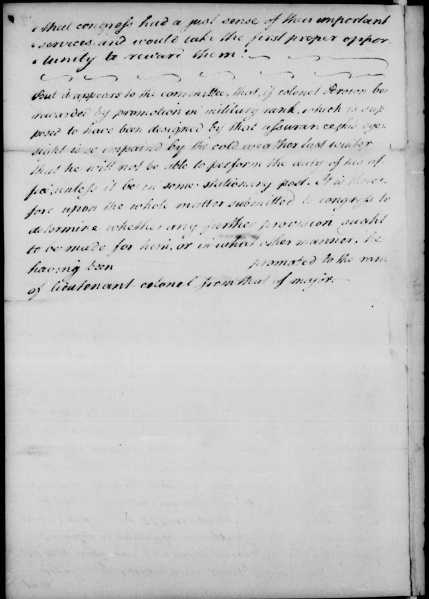 that congress had a just sense of their important
services and would take the first proper oppor
tunity to reward them:
But it appears to the committee, that, if colonel Brown be
rewarded by promotion in military rank, which is sup
posed to have been designed by that assurance, his eye
sight is so impaired by the cold weather last winter
that he will not be able to perform the duty of his of
fice, unless it be in some stationary post. It is there
fore upon the whole matter submitted to congress to
determine whether any further provision ought
to be made for him, or in what other manner, he
having been promoted to the rank
of lieutenant colonel from that of major.